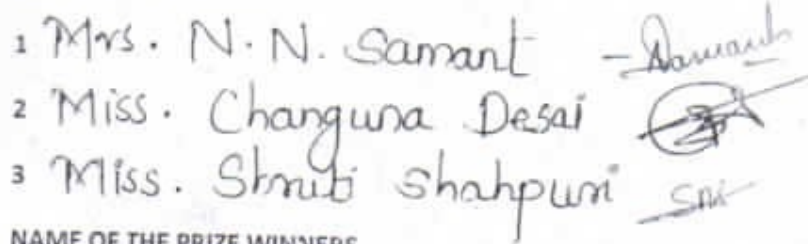 1 Mrs. N. N. Samant
2 Miss. Changuna Desai
3 Miss. Shruti Shahpuri
NAME OF THE PRIZE WINNERS